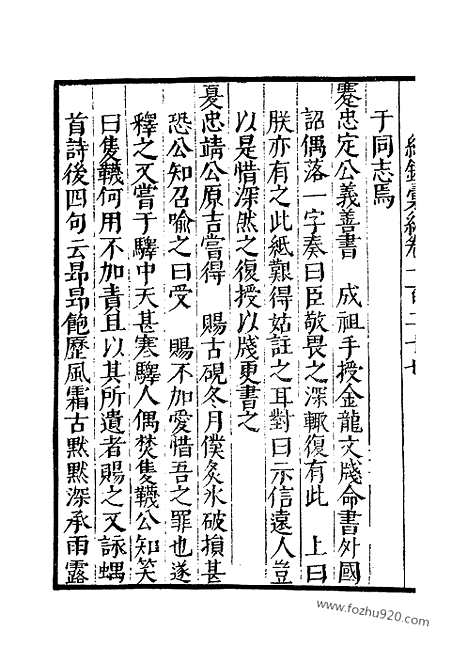 編卷一百二十七
于同志焉
蹇忠定公義善書　成祖手授金龍文牋命書外國
詔偶落一字奏曰臣敬畏之深輒復有此　上曰
朕亦有之此紙艱得姑註之耳對曰示信遠人豈
以是惜深然之復授以牋更書之
夏忠靖公原吉嘗得　賜古硯冬月僕炙氷破損甚
恐公知召喻之曰受　賜不加愛惜吾之罪也遂
釋之又嘗于驛中天甚寒驛人偶焚隻韈公知笑
曰隻韈何用不加責且以其所遺者賜之又詠蝸
首詩後四句云昂昂飽歷風霜古黙黙深承雨露
www.fozhu920.com